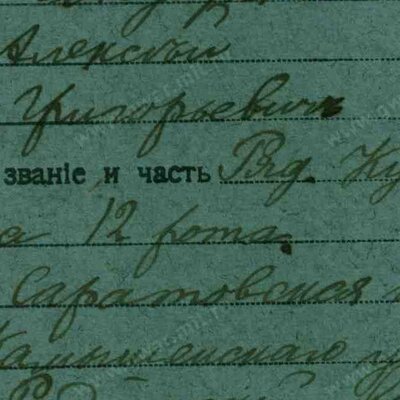 Алексѣй
Григорьевичъ
званіе и часть Ряд.
12 рота
Саратовская
Камышенскаго